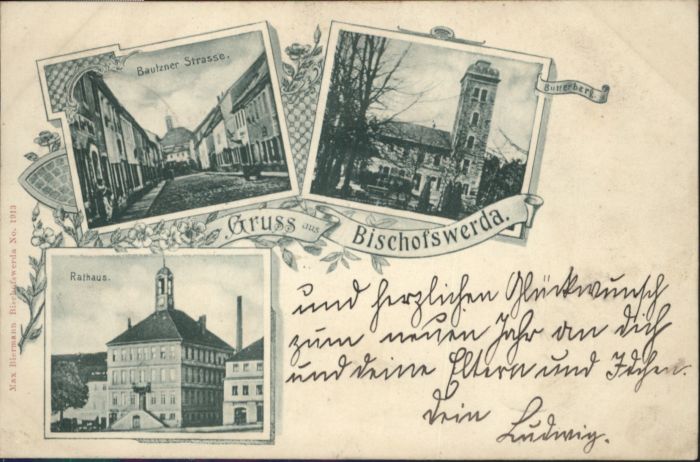 Bautzner Strasse.
Butterberg.
Gruss aus Bischofswerda.
Rathaus.
Max Biermann Bischofswerda No. 1913
und herzlichen Glückwunsch
zum neuen Jahr an dich
und deine Eltern und
Dein
Ludwig.